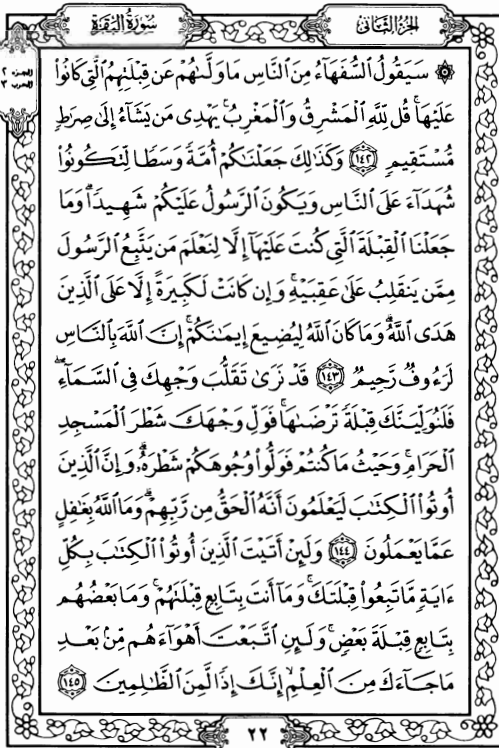 الجزء الثاني
سورة البقرة
الجزء ٢
الحزب ٣
۞ سَيَقُولُ ٱلسُّفَهَآءُ مِنَ ٱلنَّاسِ مَا وَلَّىٰهُمْ عَن قِبْلَتِهِمُ ٱلَّتِى كَانُوا۟
عَلَيْهَا ۚ قُل لِّلَّهِ ٱلْمَشْرِقُ وَٱلْمَغْرِبُ ۚ يَهْدِى مَن يَشَآءُ إِلَىٰ صِرَٰطٍ
مُّسْتَقِيمٍ ﴿١٤٢﴾ وَكَذَٰلِكَ جَعَلْنَٰكُمْ أُمَّةً وَسَطًا لِّتَكُونُوا۟
شُهَدَآءَ عَلَى ٱلنَّاسِ وَيَكُونَ ٱلرَّسُولُ عَلَيْكُمْ شَهِيدًا ۗ وَمَا
جَعَلْنَا ٱلْقِبْلَةَ ٱلَّتِى كُنتَ عَلَيْهَآ إِلَّا لِنَعْلَمَ مَن يَتَّبِعُ ٱلرَّسُولَ
مِمَّن يَنقَلِبُ عَلَىٰ عَقِبَيْهِ ۚ وَإِن كَانَتْ لَكَبِيرَةً إِلَّا عَلَى ٱلَّذِينَ
هَدَى ٱللَّهُ ۗ وَمَا كَانَ ٱللَّهُ لِيُضِيعَ إِيمَٰنَكُمْ ۚ إِنَّ ٱللَّهَ بِٱلنَّاسِ
لَرَءُوفٌ رَّحِيمٌ ﴿١٤٣﴾ قَدْ نَرَىٰ تَقَلُّبَ وَجْهِكَ فِى ٱلسَّمَآءِ ۖ
فَلَنُوَلِّيَنَّكَ قِبْلَةً تَرْضَىٰهَا ۚ فَوَلِّ وَجْهَكَ شَطْرَ ٱلْمَسْجِدِ
ٱلْحَرَامِ ۚ وَحَيْثُ مَا كُنتُمْ فَوَلُّوا۟ وُجُوهَكُمْ شَطْرَهُۥ ۗ وَإِنَّ ٱلَّذِينَ
أُوتُوا۟ ٱلْكِتَٰبَ لَيَعْلَمُونَ أَنَّهُ ٱلْحَقُّ مِن رَّبِّهِمْ ۗ وَمَا ٱللَّهُ بِغَٰفِلٍ
عَمَّا يَعْمَلُونَ ﴿١٤٤﴾ وَلَئِنْ أَتَيْتَ ٱلَّذِينَ أُوتُوا۟ ٱلْكِتَٰبَ بِكُلِّ
ءَايَةٍ مَّا تَبِعُوا۟ قِبْلَتَكَ ۚ وَمَآ أَنتَ بِتَابِعٍ قِبْلَتَهُمْ ۚ وَمَا بَعْضُهُم
بِتَابِعٍ قِبْلَةَ بَعْضٍ ۚ وَلَئِنِ ٱتَّبَعْتَ أَهْوَآءَهُم مِّنۢ بَعْدِ
مَا جَآءَكَ مِنَ ٱلْعِلْمِ ۙ إِنَّكَ إِذًا لَّمِنَ ٱلظَّٰلِمِينَ ﴿١٤٥﴾
٢٢